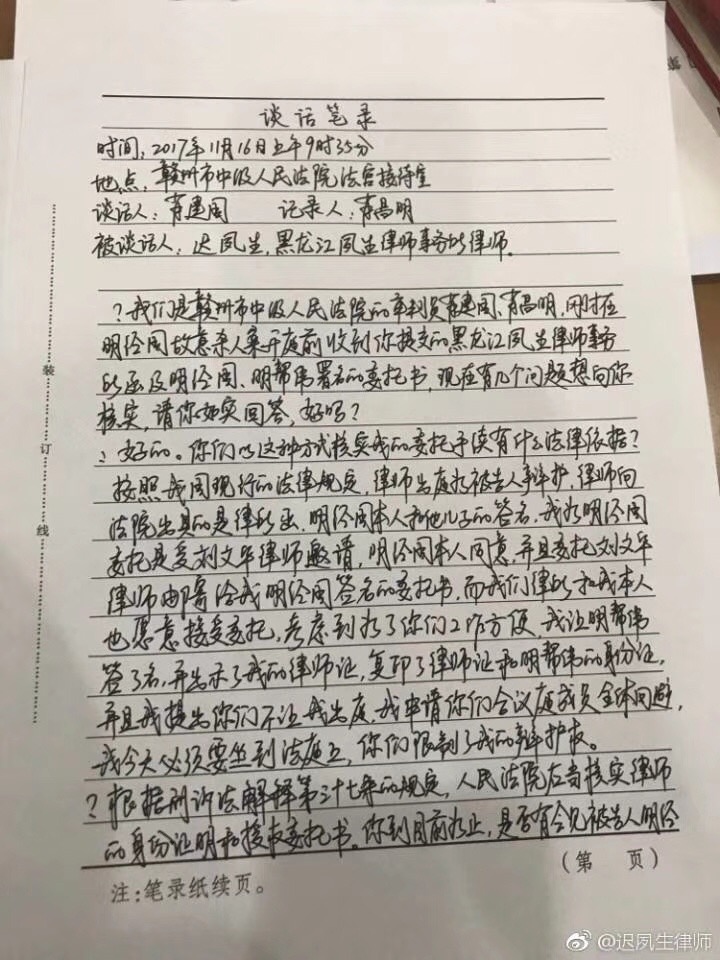 谈话笔录
时间：2017年11月16日上午9时35分
地点：赣州市中级人民法院法官接待室
谈话人：肖建国 记录人：肖昌明
被谈话人：迟夙生，黑龙江夙生律师事务所律师。
？我们是赣州市中级人民法院的审判员肖建国、肖昌明，刚才在
明经国故意杀人案开庭前收到你提交的黑龙江夙生律师事务
所函及明经国、明帮伟署名的委托书，现在有几个问题想向你
核实，请你如实回答，好吗？
：好的。你们以这种方式核实我的委托手续有什么法律依据？
按照我国现行的法律规定，律师出庭为被告人辩护，律师向
法院出具的是律所函，明经国本人和他儿子的签名，我为明经国
委托是受刘文华律师邀请，明经国本人同意，并且委托刘文华
律师由 给我明经国签名的委托书，而我们律所和我本人
也愿意接受委托，考虑到为了你们工作方便，我让明帮伟
签了名，并出示了我的律师证，复印了律师证和明帮伟的身份证，
并且我提出你们不让我出庭，我申请你们合议庭成员全体回避，
我今天必须要坐到法庭上，你们限制了我的辩护权。
？根据刑诉法解释第三十七条的规定，人民法院应当核实律师
的身份证明和授权委托书。你到目前为止，是否有会见被告人明经
（第 页）
注：笔录纸续页。
装
订
线
@迟夙生律师